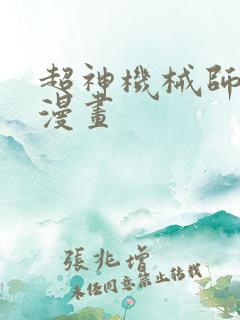 超神機械師
漫畫
張兆增
未經同意禁止轉載